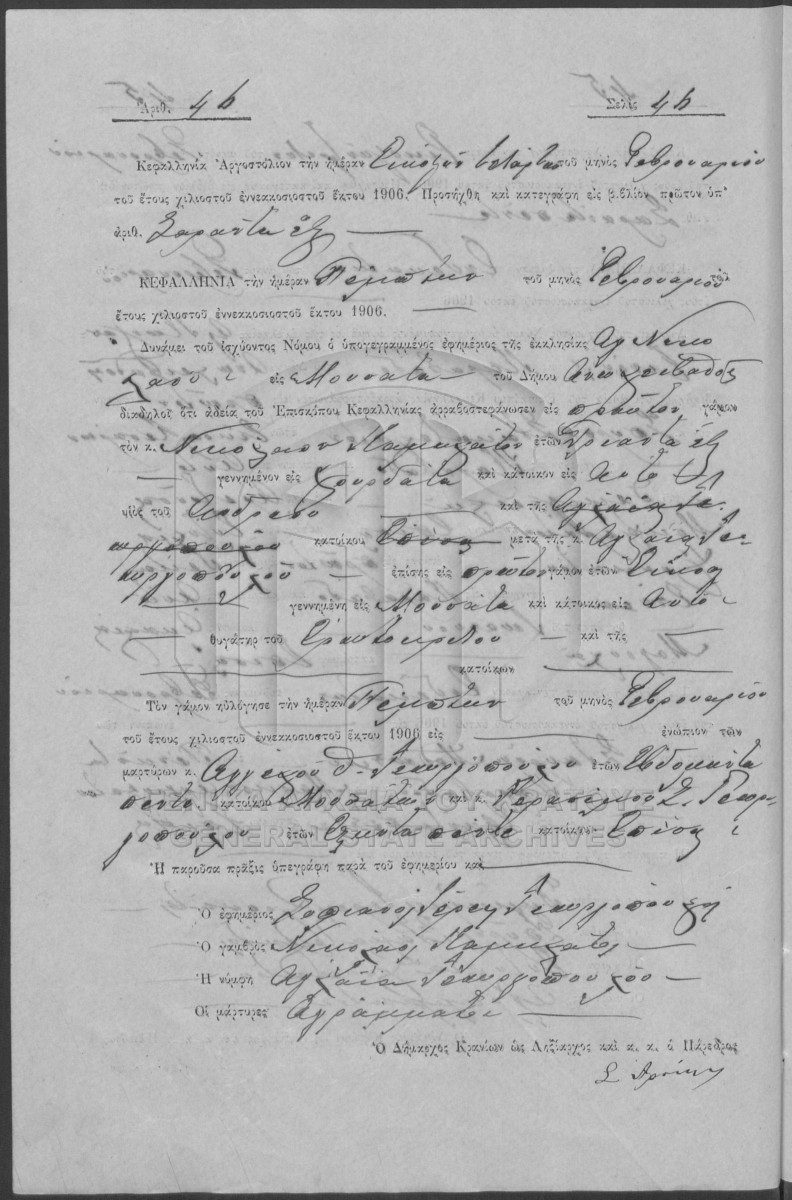 Ἀριθ. 46 Σελὶς 46
Κεφαλληνία Ἀργοστόλιον τὴν ἡμέραν Εἰκοστὴν τετάρτην τοῦ μηνὸς Φεβρουαρίου
τοῦ ἔτους χιλιοστοῦ ἐννεακοσιοστοῦ ἕκτου 1906. Προσήχθη καὶ κατεγράφη εἰς βιβλίον πρῶτον ὑπ'
ἀριθ. Σαράντα ἕξ
ΚΕΦΑΛΛΗΝΙΑ τὴν ἡμέραν Πέμπτην τοῦ μηνὸς Φεβρουαρίου τοῦ
ἔτους χιλιοστοῦ ἐννεακοσιοστοῦ ἕκτου 1906.
Δυνάμει τοῦ ἰσχύοντος Νόμου ὁ ὑπογεγραμμένος ἐφημέριος τῆς ἐκκλησίας Ἁγ Νικο
λάου εἰς Μουσάτα τοῦ Δήμου
διαδηλοῖ ὅτι ἀδείᾳ τοῦ Ἐπισκόπου Κεφαλληνίας ἀρραβοστεφάνωσεν εἰς πρῶτον γάμον
τὸν κ. Νικόλαον ἐτῶν Τριάντα ἕξ
γεννημένον εἰς Χουρδάτα καὶ κάτοικον εἰς
υἱὸς τοῦ Ἀνδρέου καὶ τῆς Ἀγλαΐας Γε
ωργοπούλου κατοίκου Ἐπίσης μετὰ τῆς κ. Ἀγλαΐας Γε
ωργοπούλου ἐπίσης εἰς πρῶτον γάμον ἐτῶν Εἴκοσι
γεννημένη εἰς Μουσάτα καὶ κάτοικος εἰς
θυγάτηρ τοῦ καὶ τῆς
κατοίκων
Τὸν γάμον ηὐλόγησε τὴν ἡμέραν Πέμπτην τοῦ μηνὸς Φεβρουαρίου
τοῦ ἔτους χιλιοστοῦ ἐννεακοσιοστοῦ ἕκτου 1906 εἰς ἐνώπιον τῶν
μαρτύρων κ. Ἀγγέλου Θ. Γεωργοπούλου ἐτῶν Ἑβδομήντα
πέντε κατοίκου Μουσάτων καὶ κ. Γερασίμου Σ. Γεωρ
γοπούλου ἐτῶν πέντε κατοίκου Ἐπίσης
ΓΕΝΙΚΑ ΑΡΧΕΙΑ ΤΟΥ ΚΡΑΤΟΥΣ
GENERAL STATE ARCHIVES
Ἡ παροῦσα πρᾶξις ὑπεγράφη παρὰ τοῦ ἐφημερίου καὶ
Ὁ ἐφημέριος Σοφιανὸς Ἱερεὺς Γεωργόπουλος
Ὁ γαμβρὸς Νικόλαος
Ἡ νύμφη Ἀγλαΐα Γεωργοπούλου
Οἱ μάρτυρες Ἀγράμματοι
Ὁ Δήμαρχος Κρανίων ὡς Ληξίαρχος καὶ κ. κ. ὁ Πάρεδρος